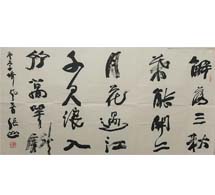 解落三秋
葉能開二
月花過江
千尺浪入
竹萬竿斜